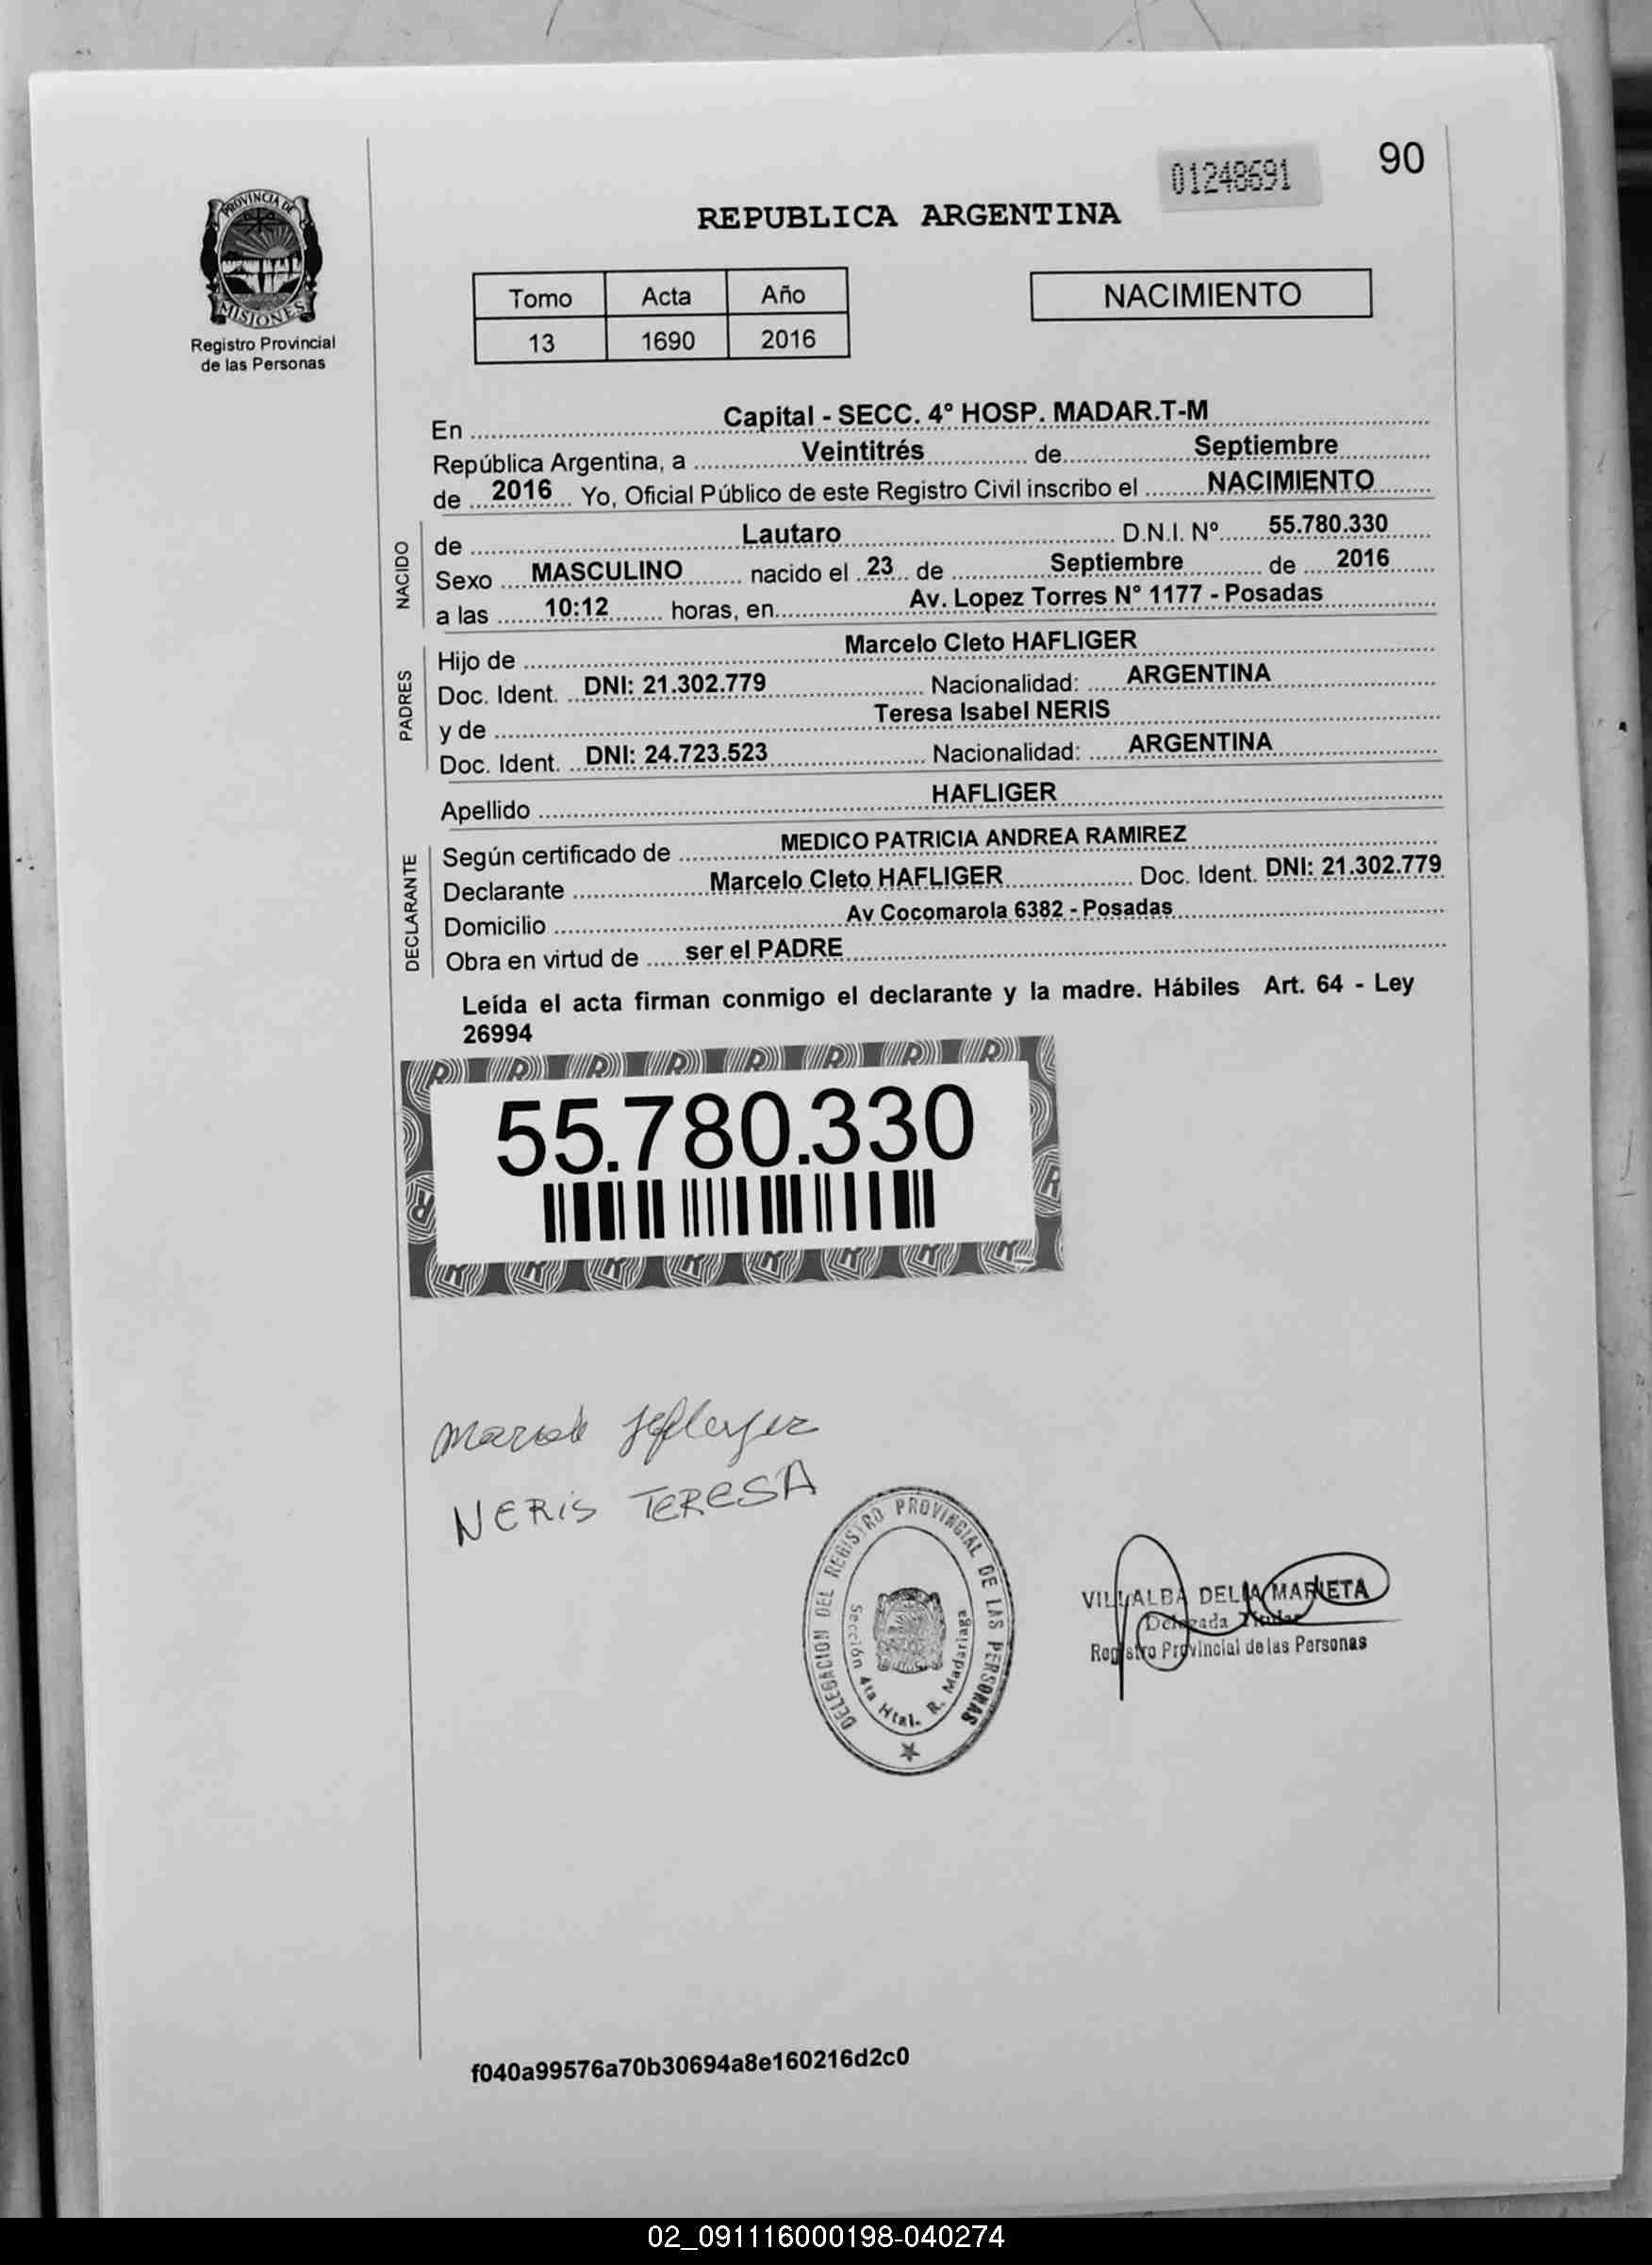 90
01248691
REPUBLICA ARGENTINA
PROVINCIA DE
MISIONES
Registro Provincial
de las Personas
Tomo Acta Año
13 1690 2016
NACIMIENTO
En Capital - SECC. 4° HOSP. MADAR.T-M
República Argentina, a Veintitrés de Septiembre
de 2016 Yo, Oficial Público de este Registro Civil inscribo el NACIMIENTO
NACIDO
de Lautaro D.N.I. Nº 55.780.330
Sexo MASCULINO nacido el 23 de Septiembre de 2016
a las 10:12 horas, en Av. Lopez Torres N° 1177 - Posadas
PADRES
Hijo de Marcelo Cleto HAFLIGER
Doc. Ident. DNI: 21.302.779 Nacionalidad: ARGENTINA
y de Teresa Isabel NERIS
Doc. Ident. DNI: 24.723.523 Nacionalidad: ARGENTINA
Apellido HAFLIGER
DECLARANTE
Según certificado de MEDICO PATRICIA ANDREA RAMIREZ
Declarante Marcelo Cleto HAFLIGER Doc. Ident. DNI: 21.302.779
Domicilio Av Cocomarola 6382 - Posadas
Obra en virtud de ser el PADRE
Leída el acta firman conmigo el declarante y la madre. Hábiles Art. 64 - Ley
26994
55.780.330
NERIS TERESA
DELEGACION DEL REGISTRO PROVINCIAL DE LAS PERSONAS
Sección 4ta Htal. R. Madariaga
VILLALBA DELIA MARIETA
Delegada Titular
Registro Provincial de las Personas
f040a99576a70b30694a8e160216d2c0
02_091116000198-040274